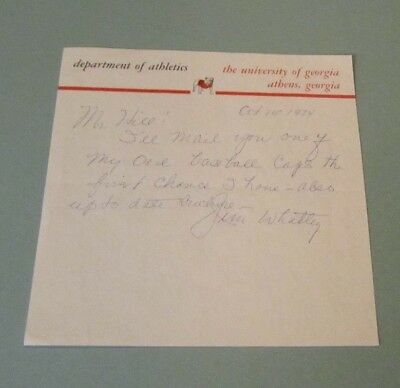 department of athletics
the university of georgia
athens, georgia
Oct 14 1974
Mr Hill:
I'll mail you one of
my old baseball caps the
first chance I have - also
up to date
Jim Whatley